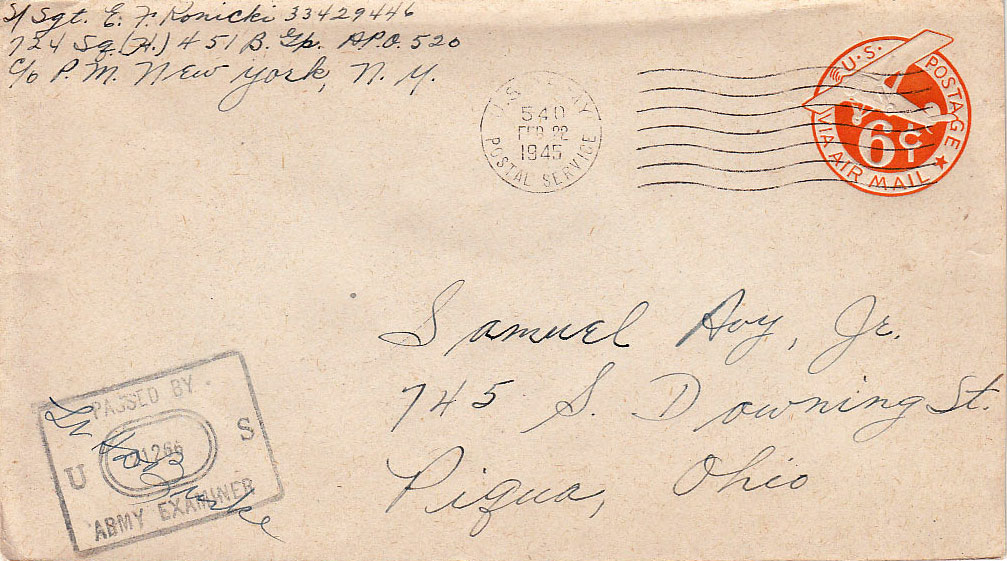 S/Sgt. E. F. Konicki 33429446
724 Sq. (H.) 451 B. Gp. A.P.O. 520
c/o P.M. New York, N.Y.
U.S. POSTAGE
6¢
VIA AIR MAIL
U.S. ARMY
540
FEB 22
1945
POSTAL SERVICE
Samuel Avy, Jr.
745 S. Downing St.
Piqua, Ohio
PASSED BY
U 1266 S
ARMY EXAMINER